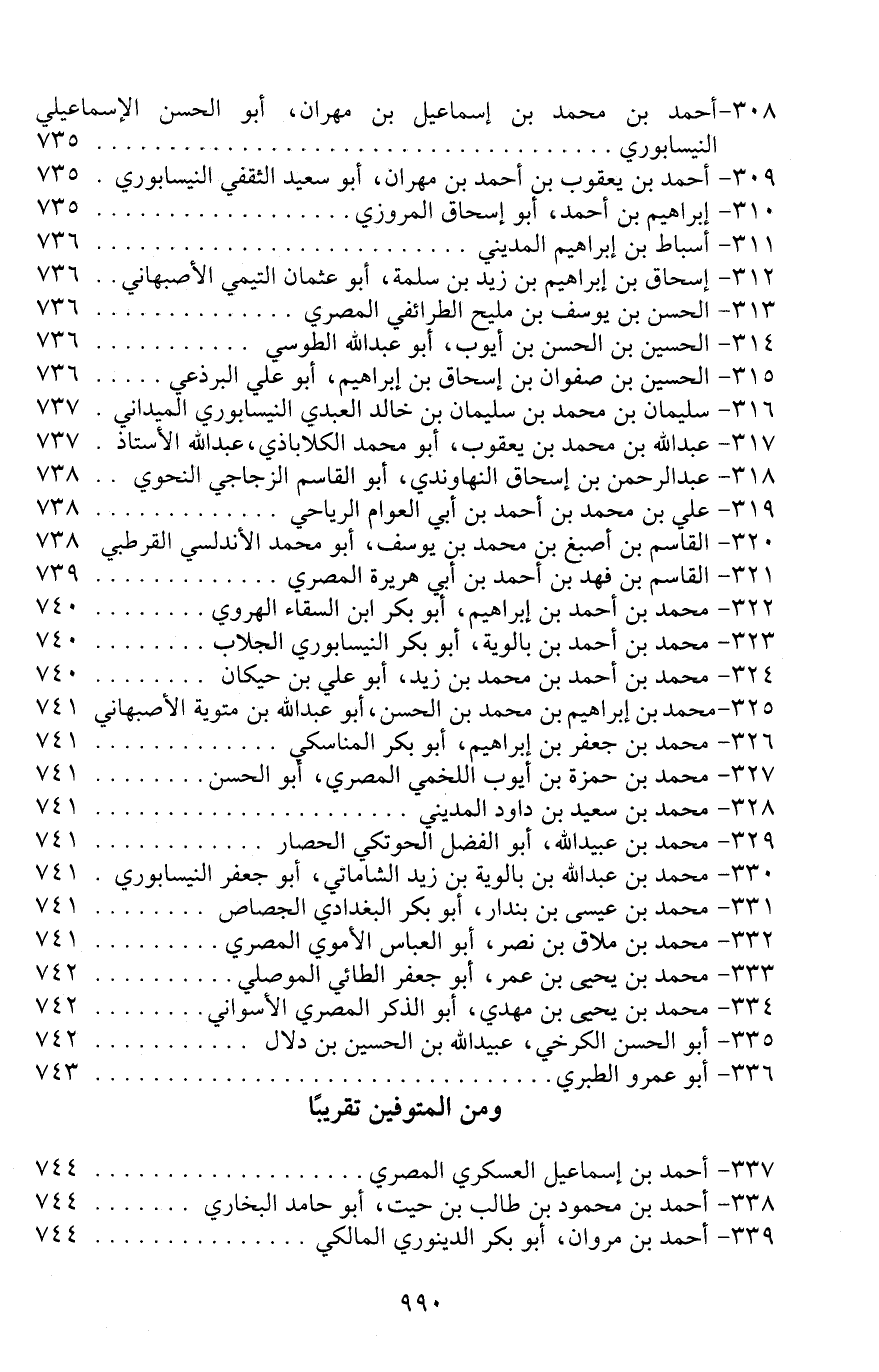 ٣٠٨-أحمد بن محمد بن إسماعيل بن مهران، أبو الحسن الإسماعيلي
النيسابوري . . . . . . . . . . . . . . . . . . . . . . . . . . . . . . . . . . . . ٧٣٥
٣٠٩- أحمد بن يعقوب بن أحمد بن مهران، أبو سعيد الثقفي النيسابوري . ٧٣٥
٣١٠- إبراهيم بن أحمد، أبو إسحاق المروزي . . . . . . . . . . . . . . . . . . ٧٣٥
٣١١- أسباط بن إبراهيم المديني . . . . . . . . . . . . . . . . . . . . . . . . . . ٧٣٦
٣١٢- إسحاق بن إبراهيم بن زيد بن سلمة، أبو عثمان التيمي الأصبهاني . . ٧٣٦
٣١٣- الحسن بن يوسف بن مليح الطرائفي المصري . . . . . . . . . . . . . . ٧٣٦
٣١٤- الحسين بن الحسن بن أيوب، أبو عبدالله الطوسي . . . . . . . . . . . ٧٣٦
٣١٥- الحسين بن صفوان بن إسحاق بن إبراهيم، أبو علي البرذعي . . . . . ٧٣٦
٣١٦- سليمان بن محمد بن سليمان بن خالد العبدي النيسابوري الميداني . ٧٣٧
٣١٧- عبدالله بن محمد بن يعقوب، أبو محمد الكلاباذي،عبدالله الأستاذ . ٧٣٧
٣١٨- عبدالرحمن بن إسحاق النهاوندي، أبو القاسم الزجاجي النحوي . . ٧٣٨
٣١٩- علي بن محمد بن أحمد بن أبي العوام الرياحي . . . . . . . . . . . . . ٧٣٨
٣٢٠- القاسم بن أصبغ بن محمد بن يوسف، أبو محمد الأندلسي القرطبي ٧٣٨
٣٢١- القاسم بن فهد بن أحمد بن أبي هريرة المصري . . . . . . . . . . . . . ٧٣٩
٣٢٢- محمد بن أحمد بن إبراهيم، أبو بكر ابن السقاء الهروي . . . . . . . . ٧٤٠
٣٢٣- محمد بن أحمد بن بالوية، أبو بكر النيسابوري الجلاب . . . . . . . . ٧٤٠
٣٢٤- محمد بن أحمد بن محمد بن زيد، أبو علي بن حيكان . . . . . . . . ٧٤٠
٣٢٥-محمد بن إبراهيم بن محمد بن الحسن،أبو عبدالله بن متوية الأصبهاني ٧٤١
٣٢٦- محمد بن جعفر بن إبراهيم، أبو بكر المناسكي . . . . . . . . . . . . . ٧٤١
٣٢٧- محمد بن حمزة بن أيوب اللخمي المصري، أبو الحسن . . . . . . . . ٧٤١
٣٢٨- محمد بن سعيد بن داود المديني . . . . . . . . . . . . . . . . . . . . . . ٧٤١
٣٢٩- محمد بن عبيدالله، أبو الفضل الحوتكي الحصار . . . . . . . . . . . . ٧٤١
٣٣٠- محمد بن عبدالله بن بالوية بن زيد الشاماتي، أبو جعفر النيسابوري . ٧٤١
٣٣١- محمد بن عيسى بن بندار، أبو بكر البغدادي الجصاص . . . . . . . . ٧٤١
٣٣٢- محمد بن ملاق بن نصر، أبو العباس الأموي المصري . . . . . . . . . ٧٤١
٣٣٣- محمد بن يحيى بن عمر، أبو جعفر الطائي الموصلي . . . . . . . . . . ٧٤٢
٣٣٤- محمد بن يحيى بن مهدي، أبو الذكر المصري الأسواني . . . . . . . . ٧٤٢
٣٣٥- أبو الحسن الكرخي، عبيدالله بن الحسين بن دلال . . . . . . . . . . . ٧٤٢
٣٣٦- أبو عمرو الطبري . . . . . . . . . . . . . . . . . . . . . . . . . . . . . . . . ٧٤٣
ومن المتوفين تقريبًا
٣٣٧- أحمد بن إسماعيل العسكري المصري . . . . . . . . . . . . . . . . . . . ٧٤٤
٣٣٨- أحمد بن محمود بن طالب بن حيت، أبو حامد البخاري . . . . . . . ٧٤٤
٣٣٩- أحمد بن مروان، أبو بكر الدينوري المالكي . . . . . . . . . . . . . . . ٧٤٤
٩٩٠